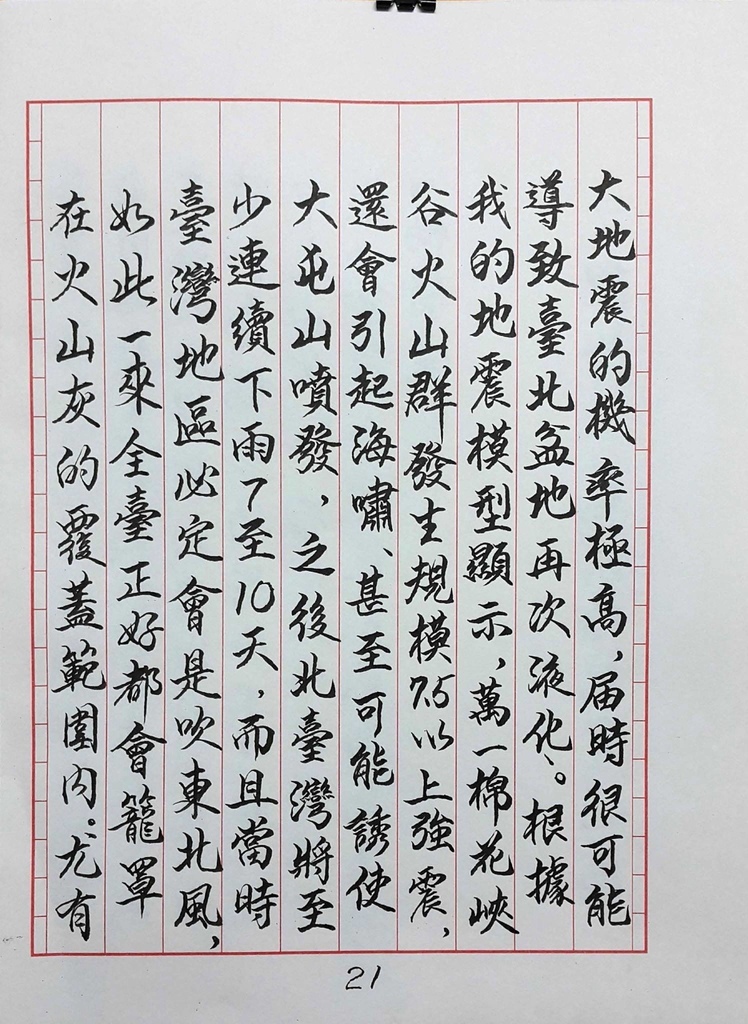 大地震的機率極高，屆時很可能
導致臺北盆地再次液化。根據
我的地震模型顯示，萬一棉花峽
谷火山群發生規模7.5以上強震，
還會引起海嘯、甚至可能誘使
大屯山噴發，之後北臺灣將至
少連續下雨7至10天，而且當時
臺灣地區必定會是吹東北風，
如此一來全臺正好都會籠罩
在火山灰的覆蓋範圍內。尤有
21